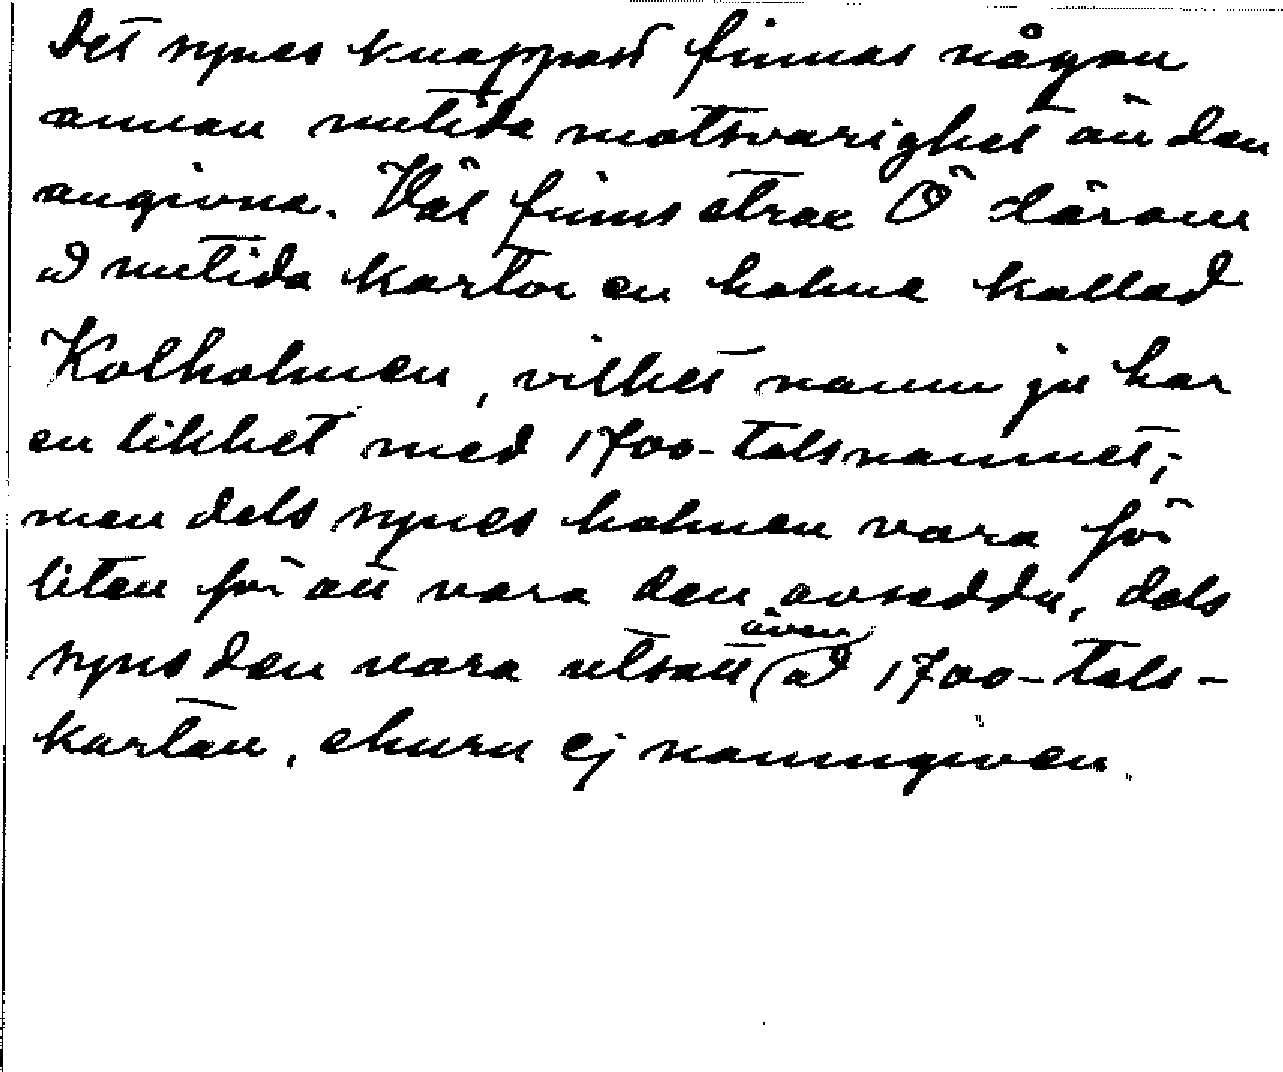 Det synes knappast finnas någon
annan nutida motsvarighet än den
angivna. Väl finns strax Ö därom
å nutida kartor en holme kallad
Kolholmen, vilket namn ju har
en likhet med 1700-talsnamnet,
men dels synes holmen vara för
liten för att vara den avsedda, dels
syns den vara utsatt även å 1700-tals-
kartan, ehuru ej namngiven.